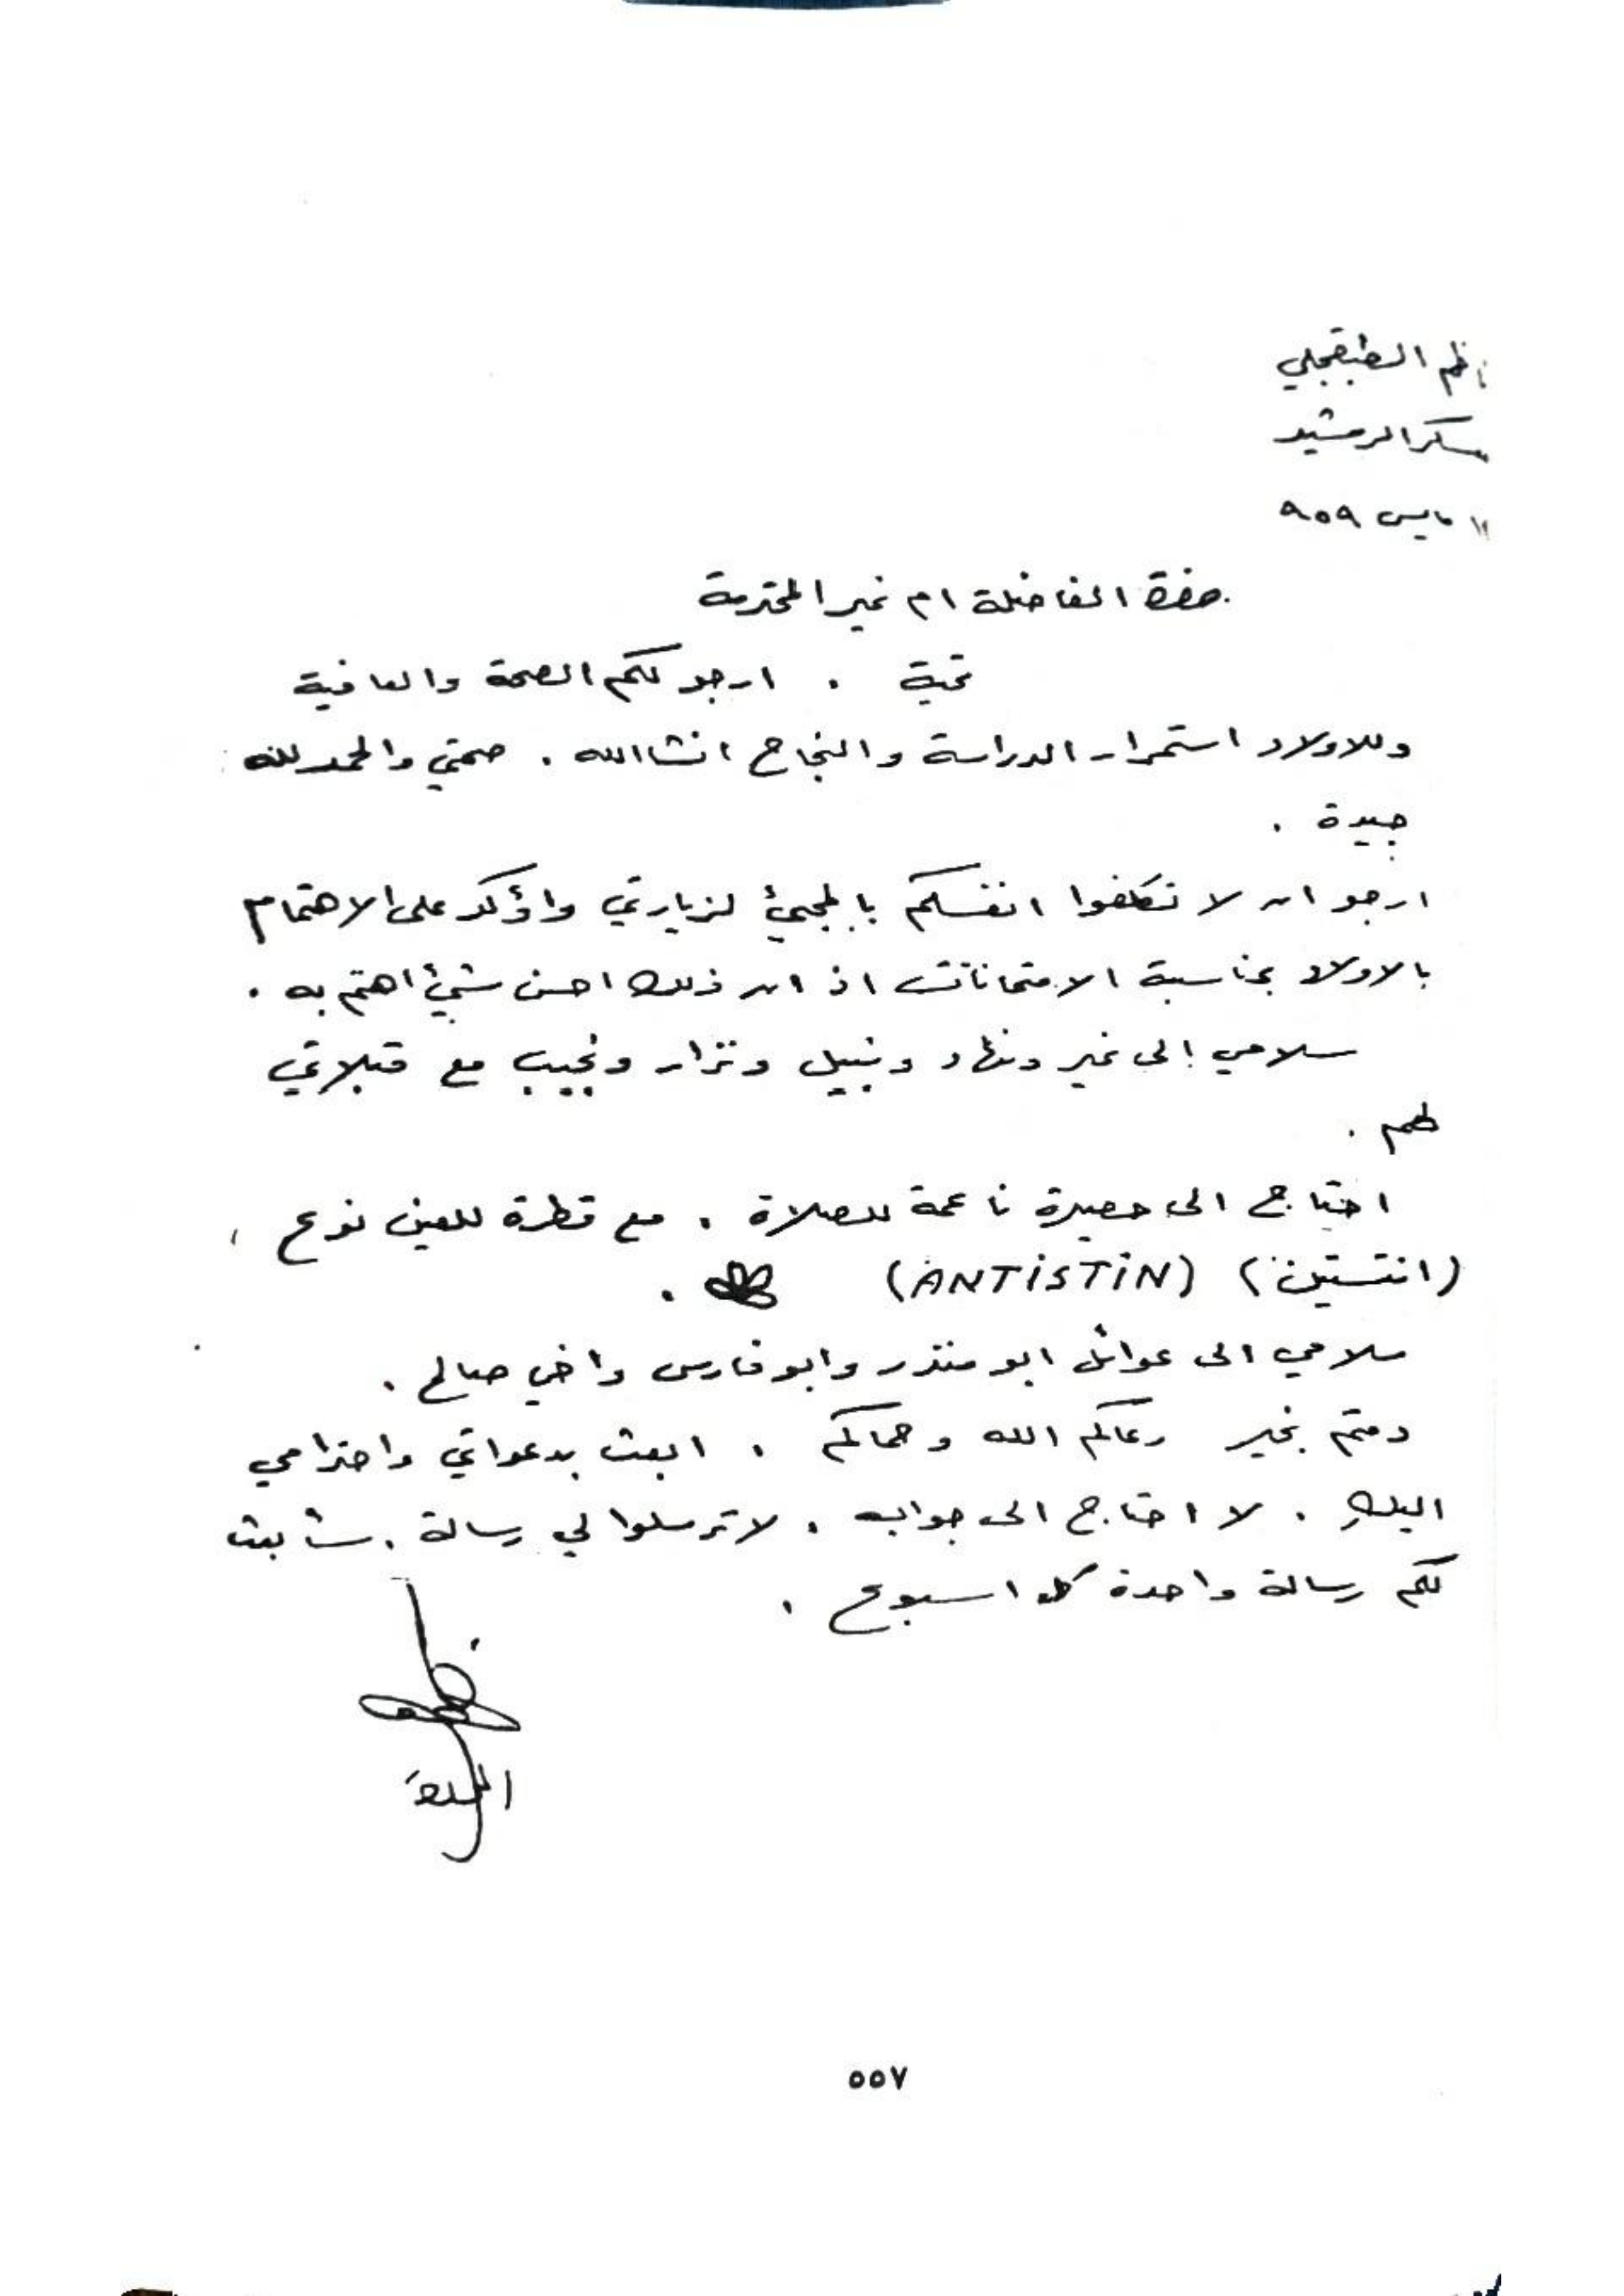 ناظم الطبقجلي
معسكر الرشيد
١١ مايس ٩٥٩
حضرة الفاضلة ام نمير المحترمة
تحية . ارجو لكم الصحة والعافية
وللاولاد استمرار الدراسة والنجاح انشاالله . صحتي والحمد لله
جيدة .
ارجو ان لا تكلفوا انفسكم بالمجيئ لزيارتي واؤكد على الاهتمام
بالاولاد بمناسبة الامتحانات اذ ان ذلك احسن شيئ اهتم به .
سلامي إلى نمير ونهاد ونبيل ونزار ونجيب مع قبلاتي
لهم .
احتاج الى حصيرة ناعمة للصلاة . مع قطرة للعين نوع
(انتستين) (ANTiSTiN) .
سلامي الى عوائل ابو منذر وابو فارس واخي صالح .
دمتم بخير رعاكم الله وحماكم . ابعث بدعواتي واحترامي
اليكِ . لا احتاج الى جواب . لا ترسلوا لي رسالة . سأبعث
لكم رسالة واحدة كل اسبوع .
ناظم
٥٥٧